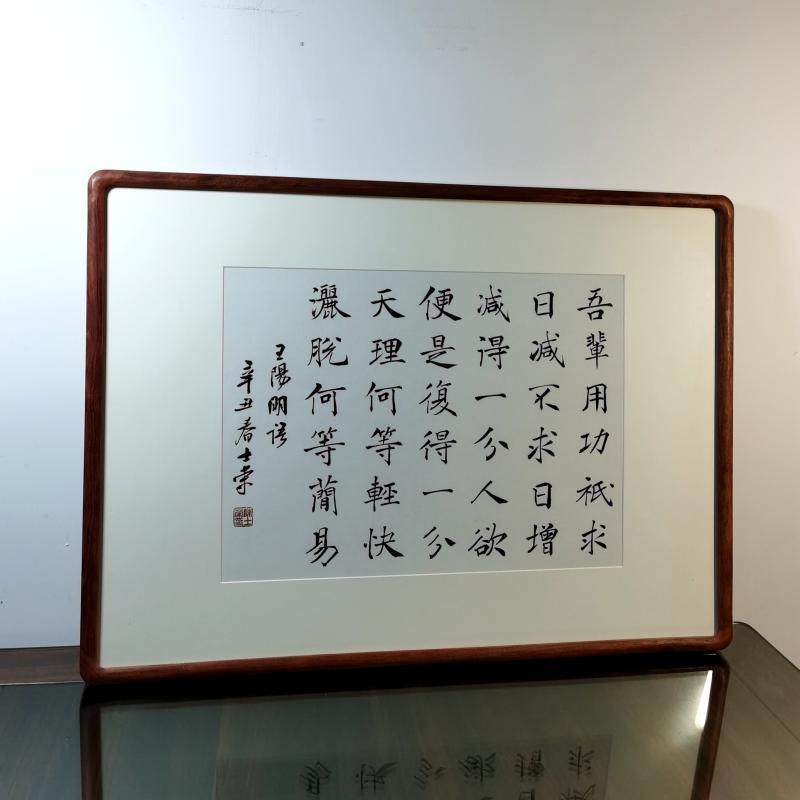 吾輩用功祇求
日減不求日增
減得一分人欲
便是復得一分
天理何等輕快
灑脫何等簡易
王陽明语
辛丑春士棠